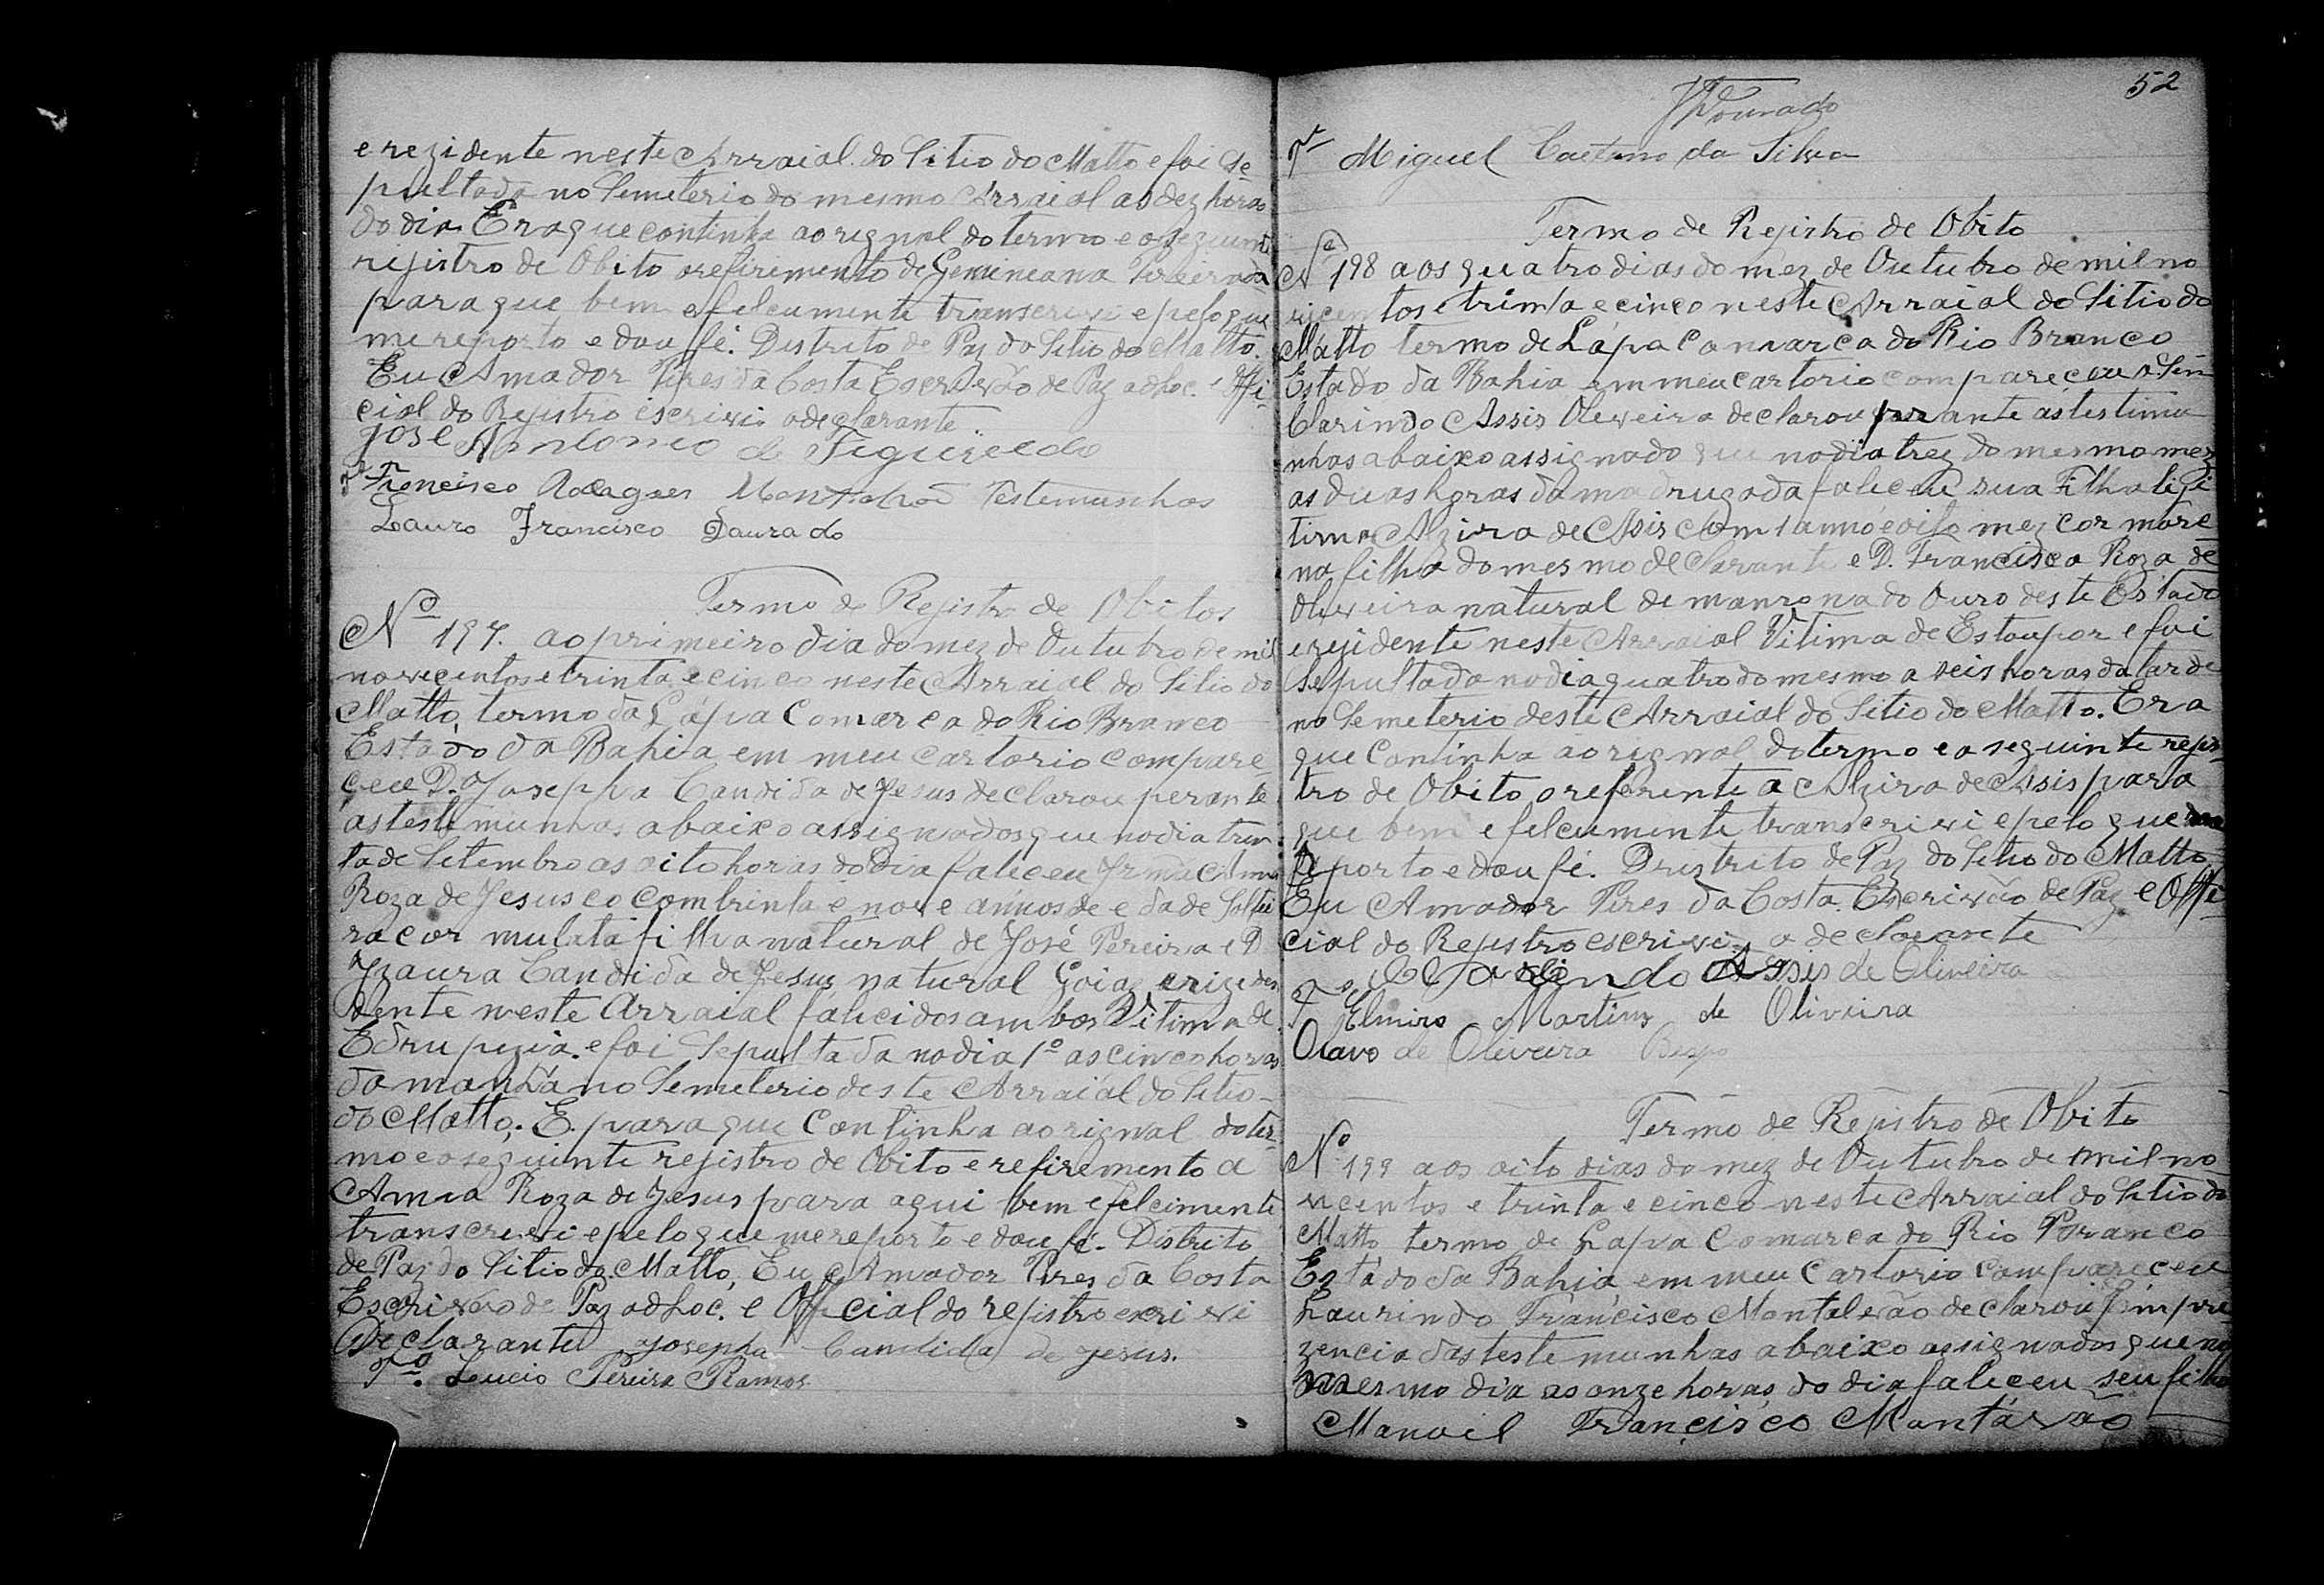 e rezidente neste Arraial do Sitio do Matto e foi Se-
pultada no Semeterio do mesmo Arraial as dez horas
do dia. Era que continha ao rignal do termo e o seguinte
rejistro de Obito e refirimento de
para que bem e felcumente transcrivi e pelo que
me reporto e dou fé. Destrito de Paz do Sitio do Matto.
Eu Amador Pires da Costa Escrivão de Paz adhoc. e Offi-
cial do Rejistro escrivi o declarante.
José Antonio de Figueiredo
Francisco Testemunhas
Lauro Francisco Dourado
Termo de Rejistro de Obitos
Nº 197. ao primeiro dia do mez de Outubro de mil
novecentos e trinta e cinco neste Arraial do Sitio do
Matto, termo da Lápa Comarca do Rio Branco
Estado da Bahia em meu cartorio compare-
çeu D. Josepha Candida de Jesus declarou perante
as testimunhas abaixo assignados que no dia trin-
ta de Setembro as oito horas do Dia faleceu Irmã Anna
Roza de Jesus co com trinta e nove annos de edade Soltei
ra cor mulata filha natural de José Pereira e D.
Izaura Candida de Jesus, natural Goiaz e rize
dente neste Arraial falicidos ambos Vitima de
Edrupezia. e foi Sepultada no dia 1º as cinco horas
da manhã no Semeterio deste Arraial do Sitio
do Matto,. E. para que Continha ao rignal do ter-
mo e o seguinte rejistro de Obito e refiremento a
Anna Roza de Jesus para aqui bem e felcimente
transcrevi e pelo que me reporto e dou fé. Distrito
de Paz do Sitio do Matto, Eu Amador Pires da Costa
Escrivão de Paz adhoc. e Official do rejistro escrivi
Declarante Josepha Candida de Jesus.
Tª. Lucio Pereira Ramos
52
Dourado
Tª Miguel Caetano da Silva
Termo de Rejistro de Obito
Nº 198 aos quatro dias do mez de Outubro de mil no
vicentos e trinta e cinco neste Arraial do Sitio do
Matto termo de Lápa Comarca do Rio Branco
Estado da Bahia em meu cartorio compareçeu o Sen
Clarindo Assis Oliveira declarou perante as testimu
nhas abaixo assignado que no dia trez do mesmo mez
as duas horas da madrugada faleceu sua Filha liji
tima Alzira de Assis com 1 anno e oito mez cor more
na filha do mesmo declarante e D. Francisca Roza de
Oliveira natural de do Ouro deste Estado
e rezidente neste Arraial Vitima de Estoupor e foi
Sepultada no dia quatro do mesmo a seis horas da tarde
no Semeterio deste Arraial do Sitio do Matto. Era
que Continha ao rignal do termo e o seguinte rejis-
tro de Obito o referente a Alzira de Assis para
que bem e felcumente transcrivi e pelo que me
reporto e dou fé. Drustrito de Paz do Sitio do Matto,
Eu Amador Pires da Costa. Escrivão de Paz e Offi-
cial do Rejistro escrivi, o declarante
Clarindo Assis de Oliveira
Tª Elmiro Martins de Oliveira
Olavo de Oliveira
Termo de Rejistro de Obito
Nº 199 aos oito dias do mez de Outubro de mil no
vicentos e trinta e cinco neste Arraial do Sitio do
Matto termo de Lapa Comarca do Rio Branco
Estado da Bahia, em meu Cartorio compareçeu
Laurindo Francisco Montalvão declarou em pre
zencia das testemunhas abaixo assignados que no
mesmo dia as onze horas do dia faleceu seu filho
Manoel Francisco Mantavão